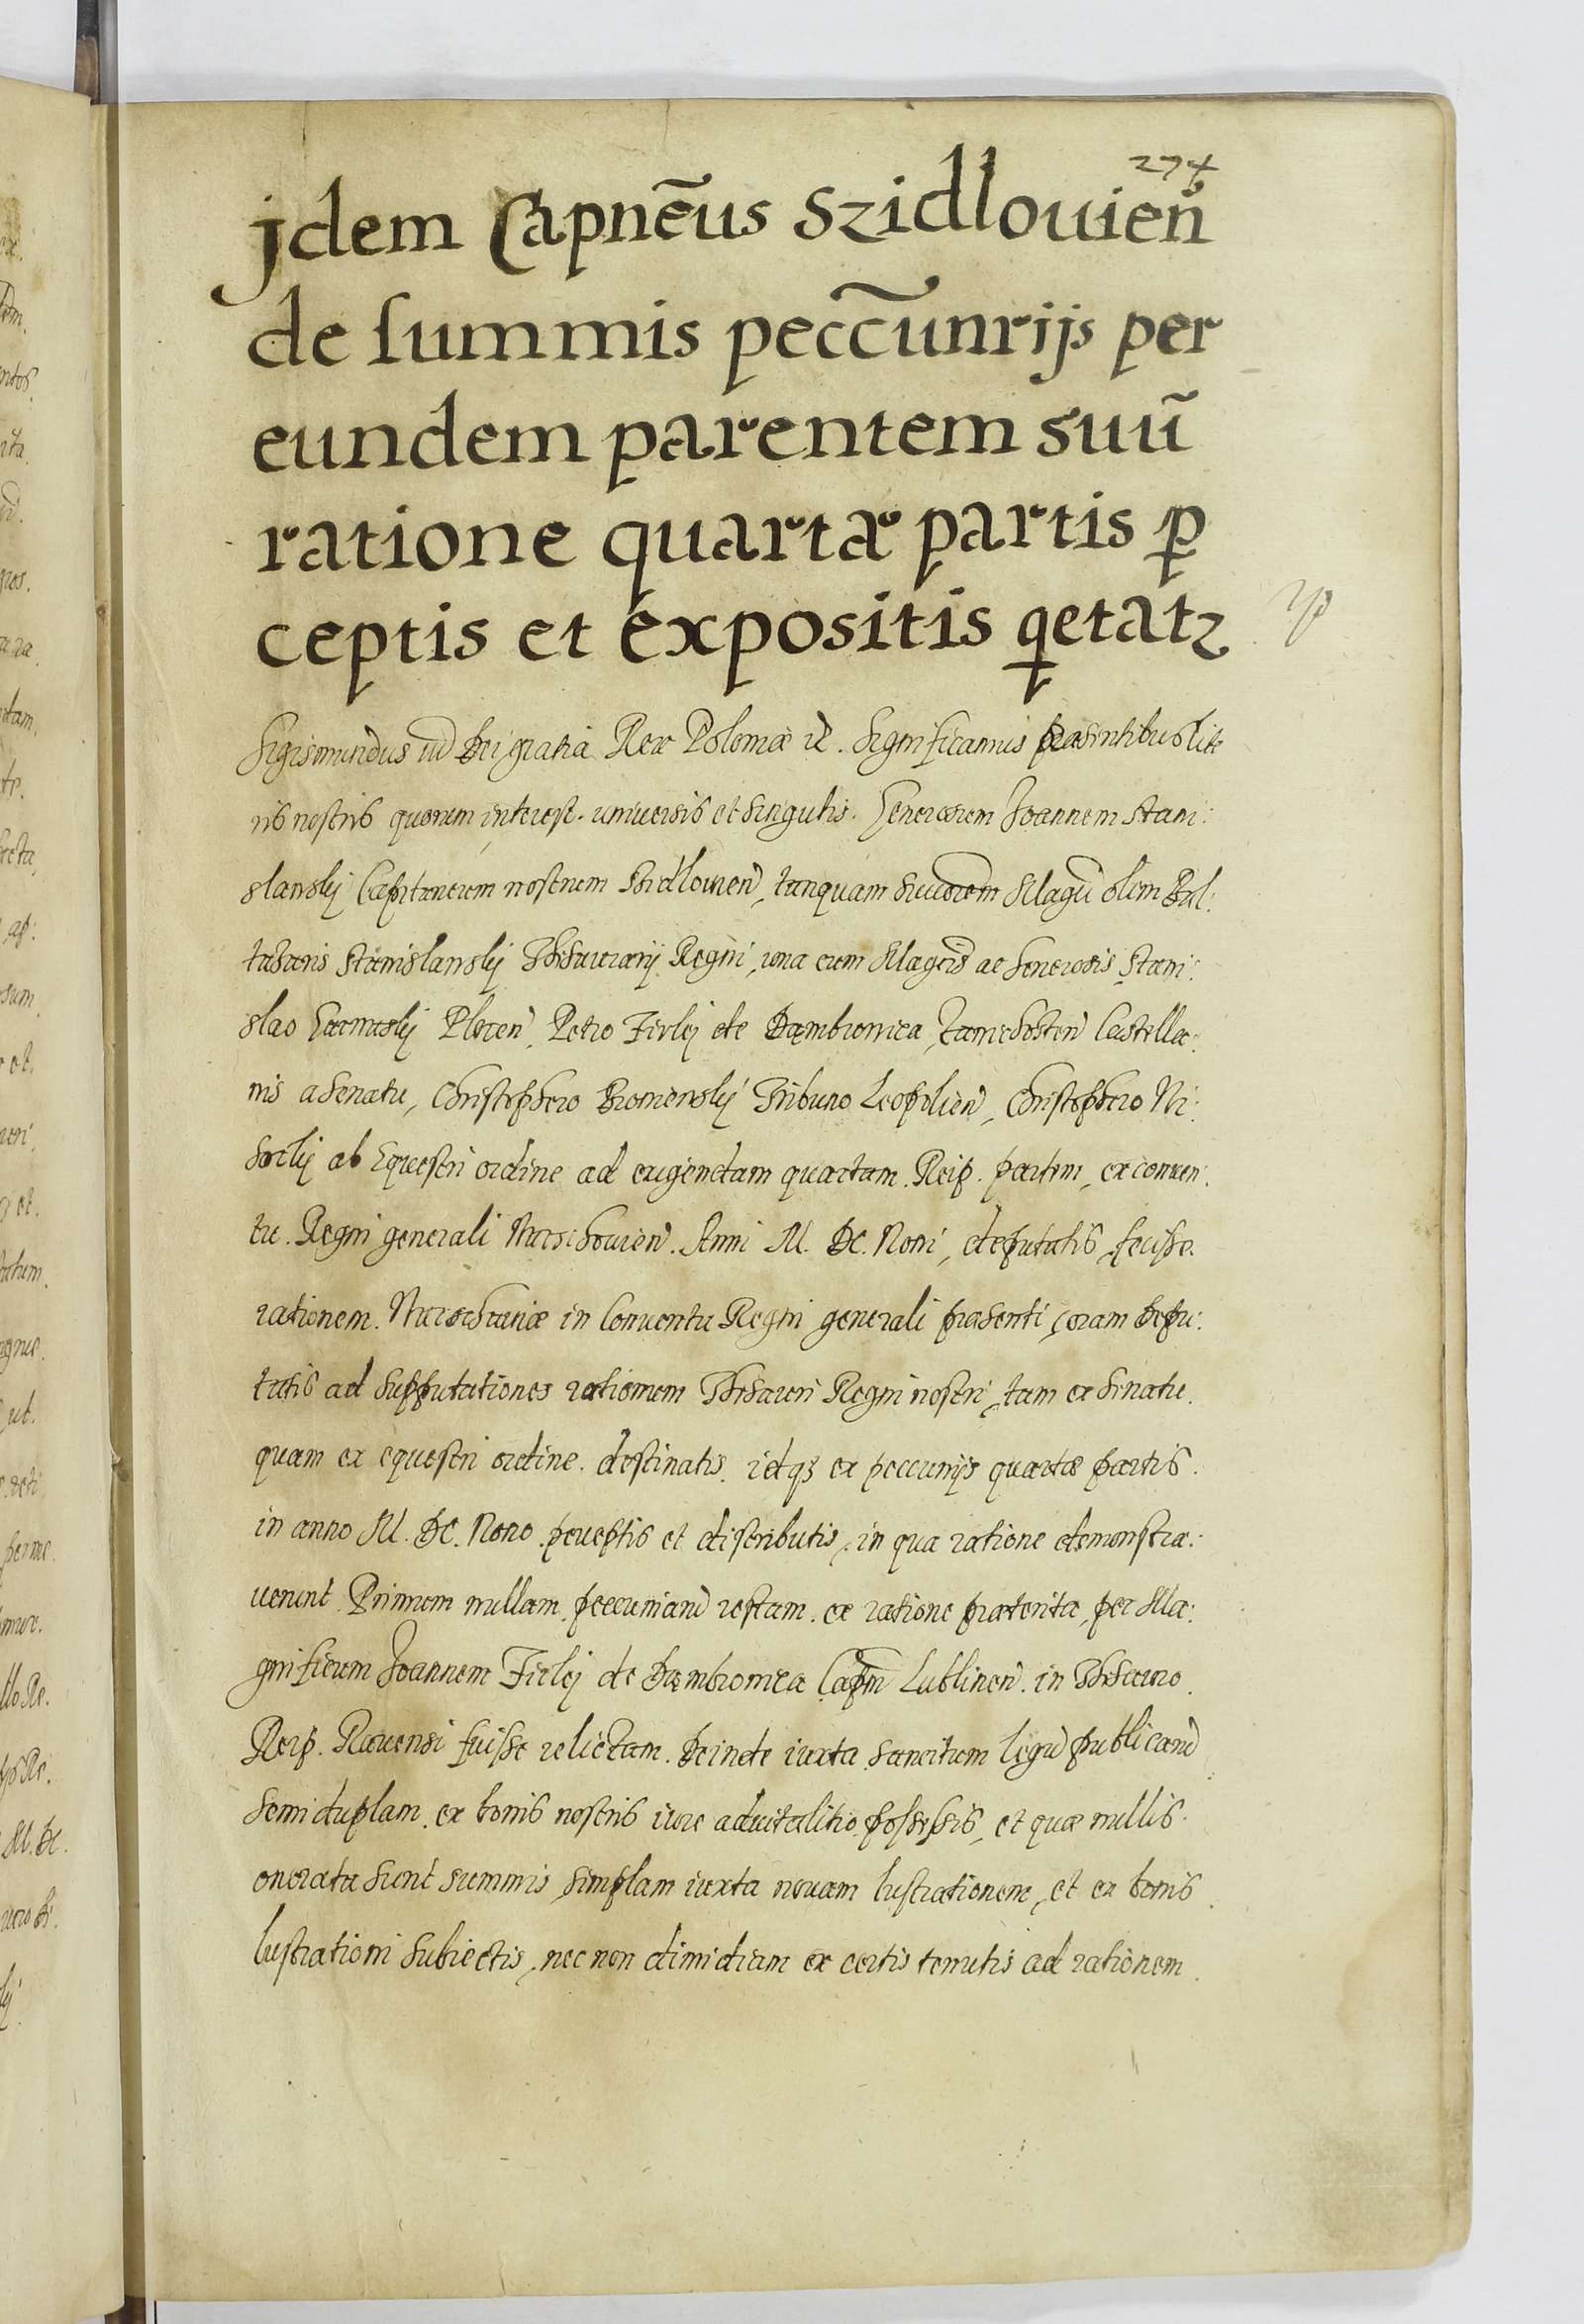 274
jdem Capnẽus Szidlouien̄
de summis peccũnrijs per
eundem parentem suũ
ratione quartæ partis ꝑ
ceptis et expositis qetatz
Sigismundus iii Dei gratia Rex Poloniæ &c. Significamus præsentibus litte
ris nostris quorum interest. uniuersis et singulis. Generosum Joannem Stani:
slawskj Capitaneum nostrum Sidlouien, tanquam Magci olim Bal:
tasaris Stanislawskj Thesaurarij Regni, una cum Magcis ac Generosis Stani:
slao Plocen, Petro Firlej de Dąmbrowica, Zawichosten Castella:
nis a Senatu, Christophero Tribuno Leopolien, Christophero Ni:
ab Equestri ordine ad exigendam quartam. Reip. partem, ex conuen:
tu. Regni generali Warschouien. Anni M. DC. Noni, deputatis, fecisse.
rationem. Warschauiæ in Conuentu Regni generali præsenti, coram Depu:
tatis ad supputationes rationum Thesauri Regni nostri, tam ex Senatu.
quam ex equestri ordine. destinatis. idqꝫ ex peccunijs quartæ partis.
in anno M. DC. Nono. perceptis et distributis, in qua ratione demonstra:
uerunt. Primum nullam. peccuniariã restam. ex ratione præterita, per Ma:
gnificum Joannem Firlej de Dąmbrowica Capm̃ Lublinen. in Thesauro.
Reip. Rauensi fuisse relictam. Deinde iuxta sancitum legũ publicarũ
semiduplam. ex bonis nostris iure aduitalitio possessis, et quæ nullis.
onerata sunt summis, simplam iuxta nouam lustrationem, et ex bonis.
lustrationi subiectis, nec non dimidiam ex certis tenutis ad rationem.